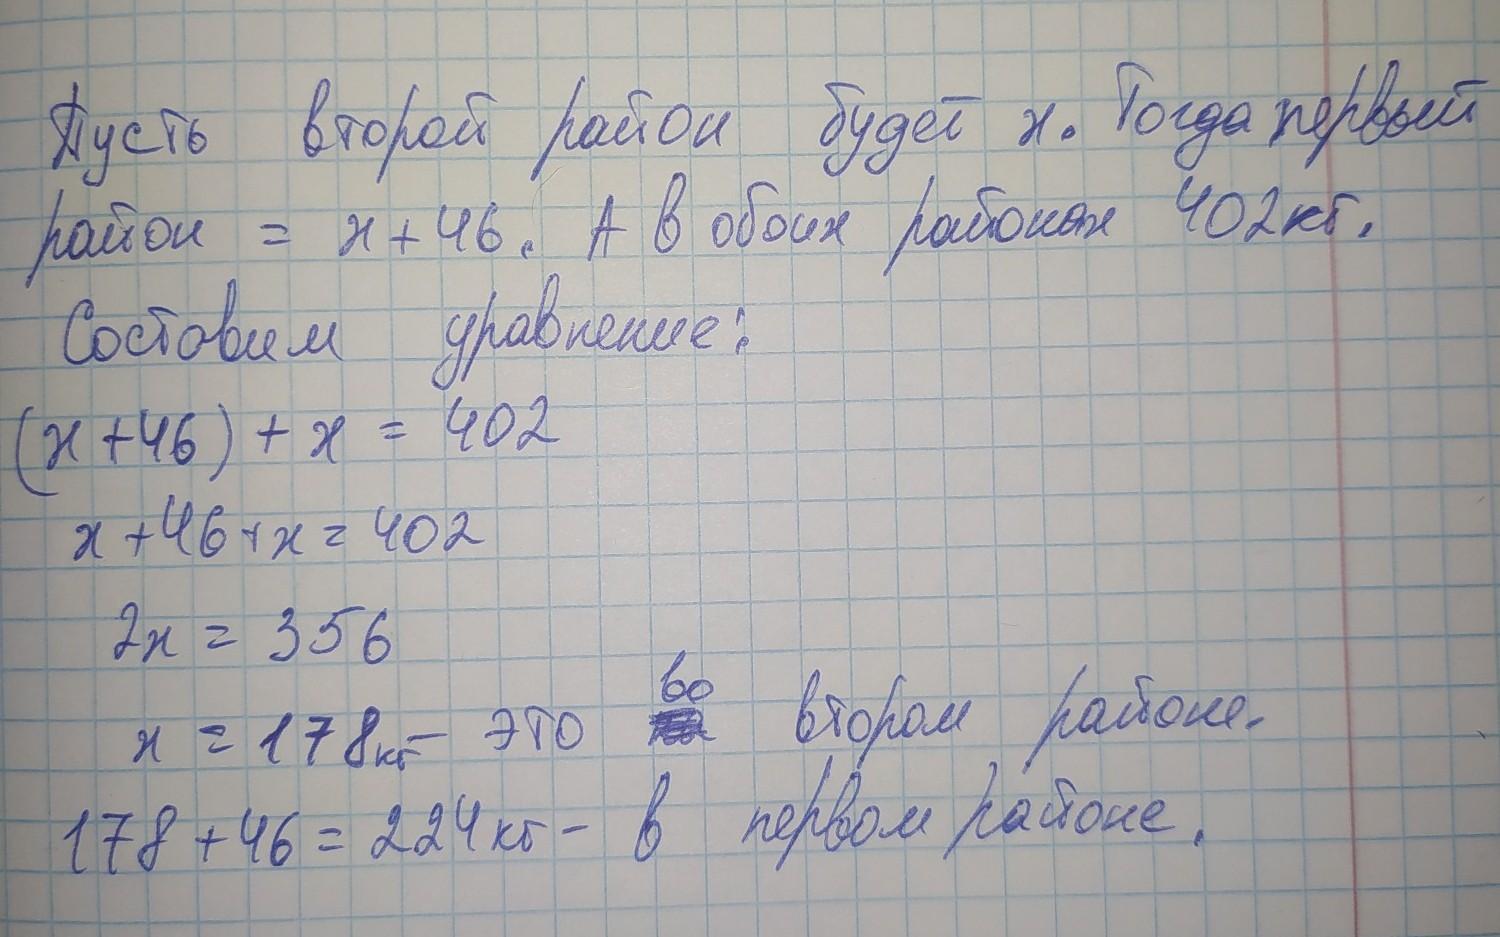 Пусть второй район будет x. Тогда первый
район = x + 46. А в обоих районах 402 кг.
Составим уравнение:
(x + 46) + x = 402
x + 46 + x = 402
2x = 356
x = 178 кг - это во втором районе.
178 + 46 = 224 кг - в первом районе.